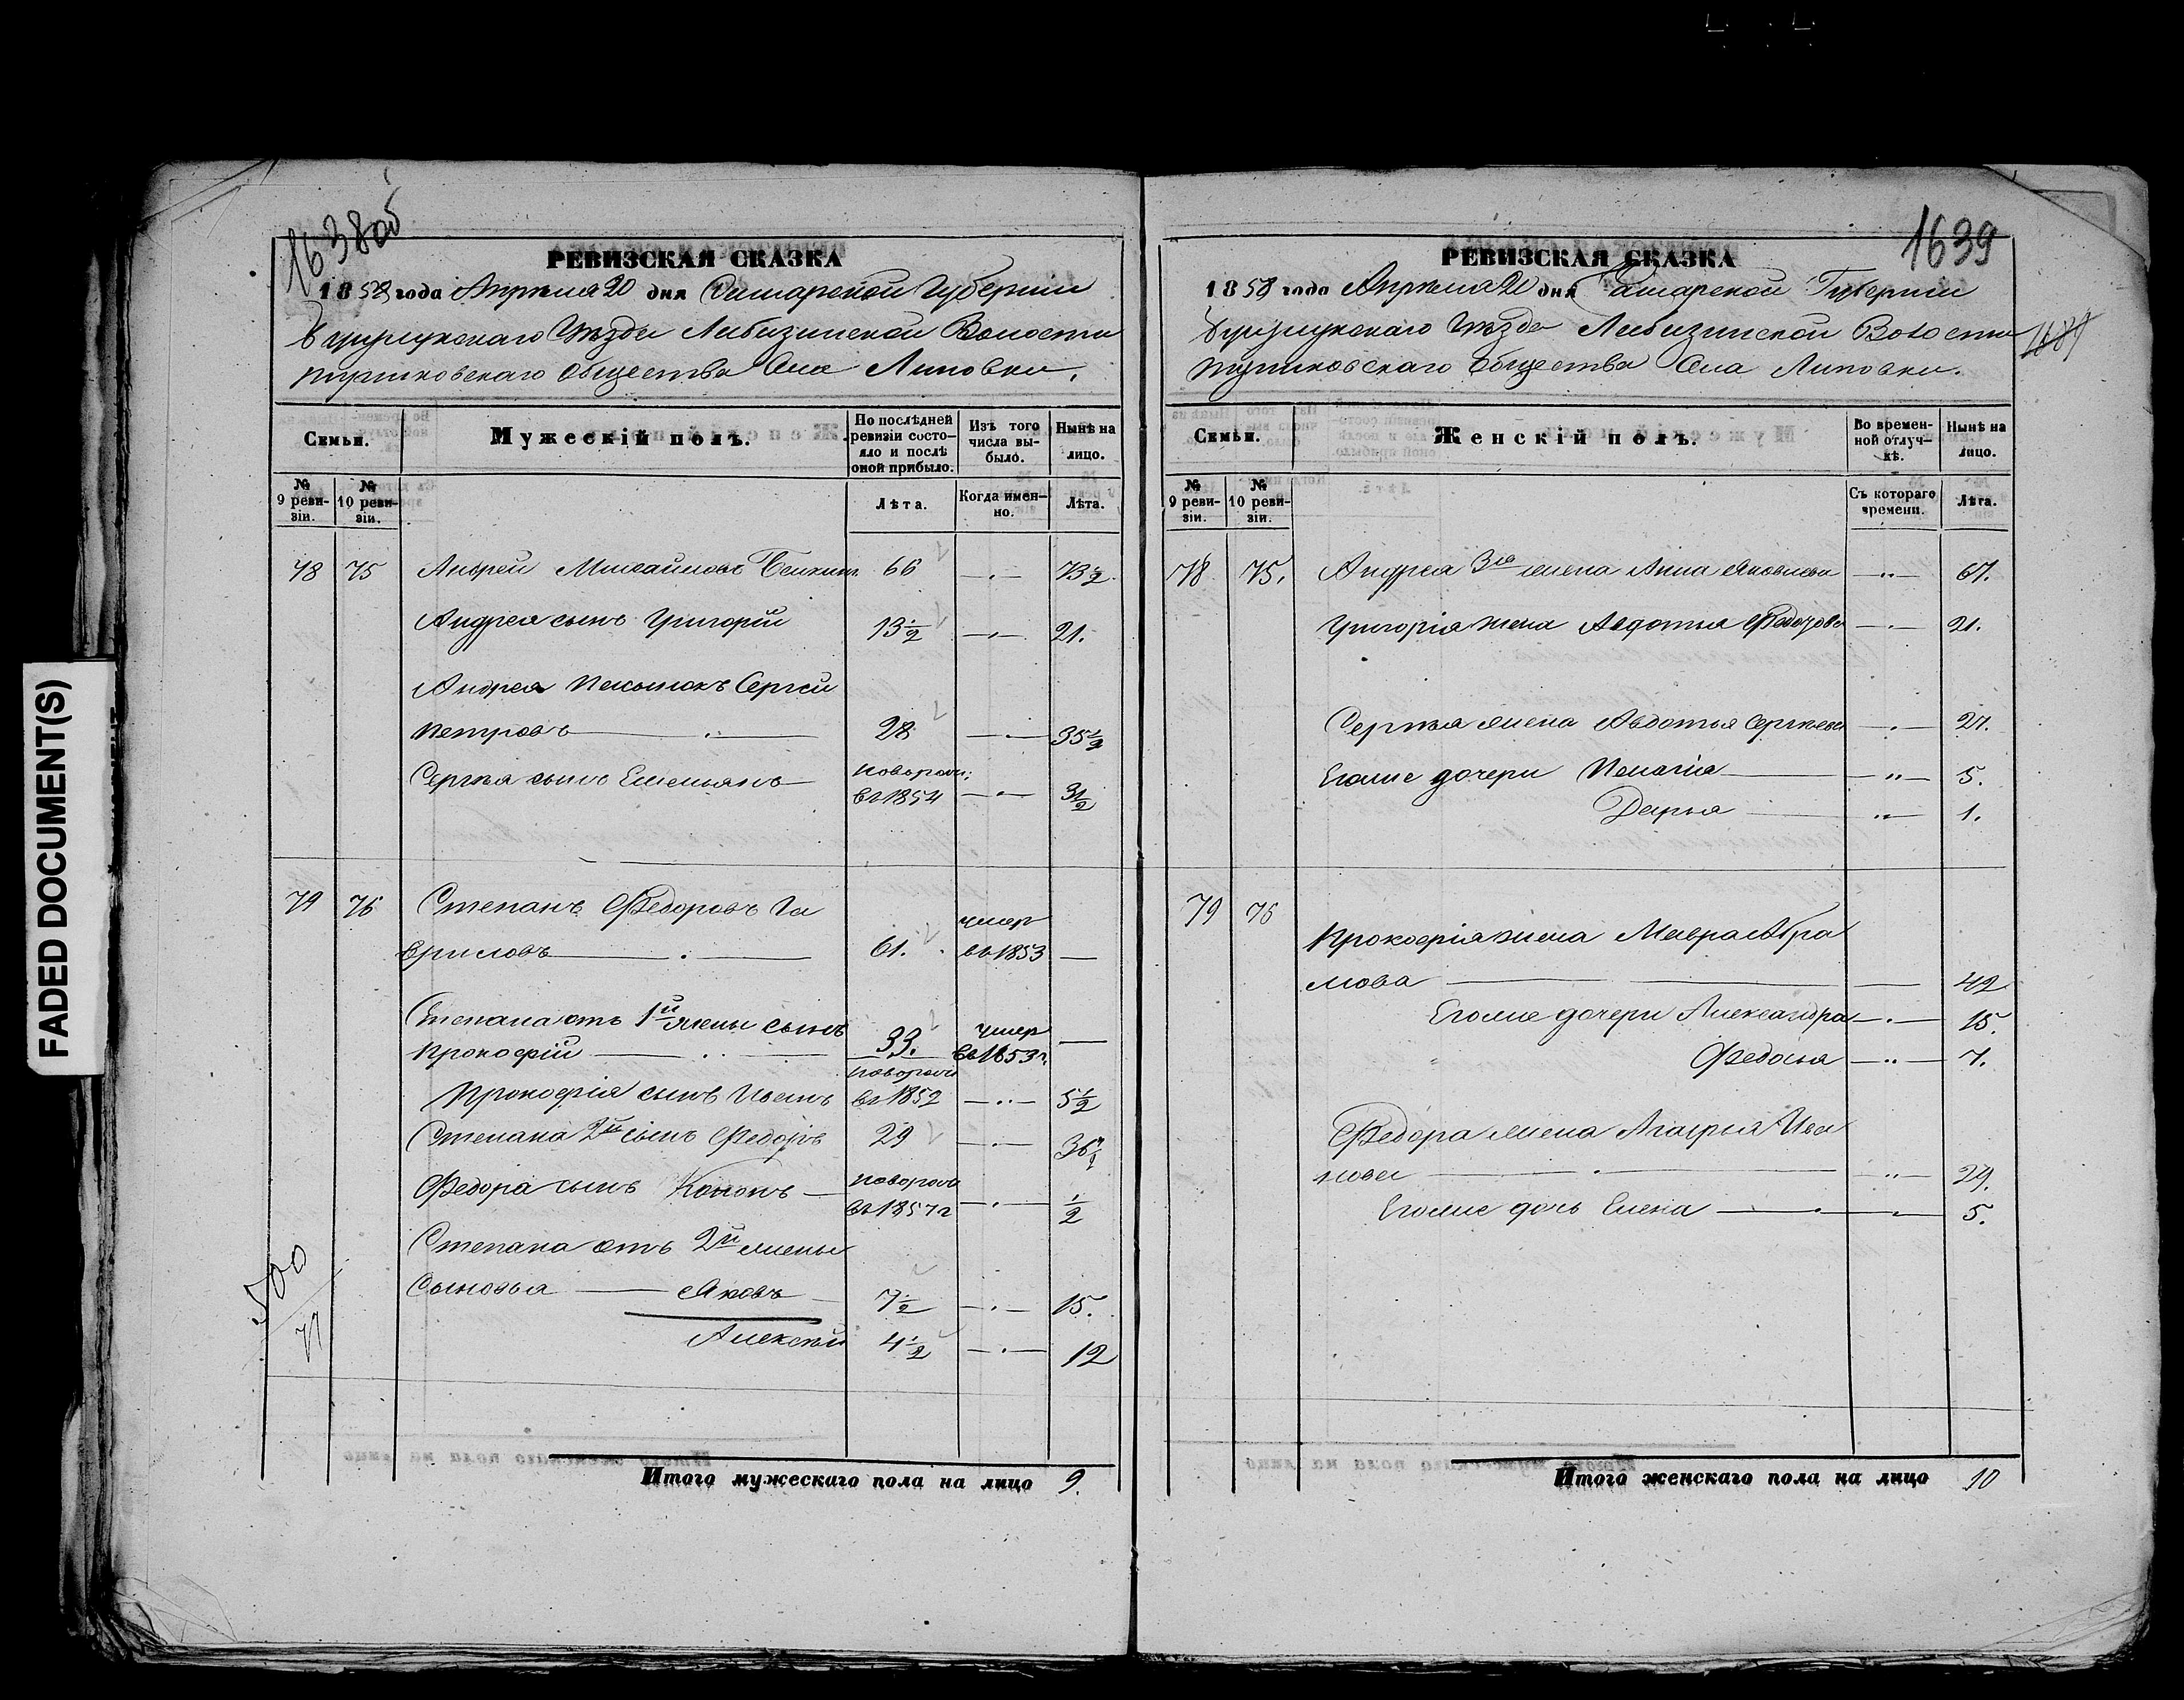 FADED DOCUMENT(S)
1638об
РЕВИЗСКАЯ СКАЗКА
1858 года Апрѣля 20 дня Самарской Губерніи
Бузулукскаго Уѣзда Лабазинской Волости
Общества Села Липовки.
Семьи.
Мужескій полъ.
По послѣдней ревизіи состо-
яло и послѣ оной прибыло.
Изъ того числа вы-
было.
Нынѣ на лицо.
№ 9 реви-
зіи.
№ 10 реви-
зіи.
Лѣта.
Когда имен-
но.
Лѣта.
78 75 Андрей Михайловъ 66 —·— 73½
Андрея сынъ Григорій 13½ —·— 21.
Андрея племянникъ Сергѣй
Петровъ 28 —·— 35½
Сергѣя сынъ Емельянъ новорож:
въ 1854 —·— 3½
79 76 Степанъ Федоровъ Га
вриловъ 61. умер
въ 1853 —
Степана отъ 1й жены сынъ
Прокофій 33. умер
въ 1853г. —
Прокофія сынъ Иванъ новорож
въ 1852 —··— 5½
Степана 2й сынъ Федоръ 29 —·— 36½
Федора сынъ Кононъ новорож
въ 1857г —·— ½
Степана отъ 2й жены
Сыновья Яковъ 7½ —·— 15.
Алексѣй 4½ —·— 12
500
77
Итого мужескаго пола на лицо 9.
1639
РЕВИЗСКАЯ СКАЗКА
1858 года Апрѣля 20 дня Самарской Губерніи
Бузулукскаго Уѣзда Лабазинской Волости
Общества Села Липовки.
1639
Семьи.
Женскій полъ.
Во времен-
ной отлуч-
кѣ.
Нынѣ на лицо.
№ 9 реви-
зіи.
№ 10 реви-
зіи.
Съ котораго времени.
Лѣта.
78 75. Андрея 3я жена Анна Яковлева —··— 67.
Григорія жена Авдотья Федорова —·— 21.
Сергѣя жена Авдотья Сергѣева —·— 27.
Егоже дочери Пелагія —··— 5.
Дарья ··— 1.
79 76
Прокофія жена Мавра Абра
мова — 42
Егоже дочери Александра —·— 15.
Федосья —··— 7.
Федора жена Агафья Ива
нова ··— 29.
Егоже дочь Елена 5.
Итого женскаго пола на лицо 10